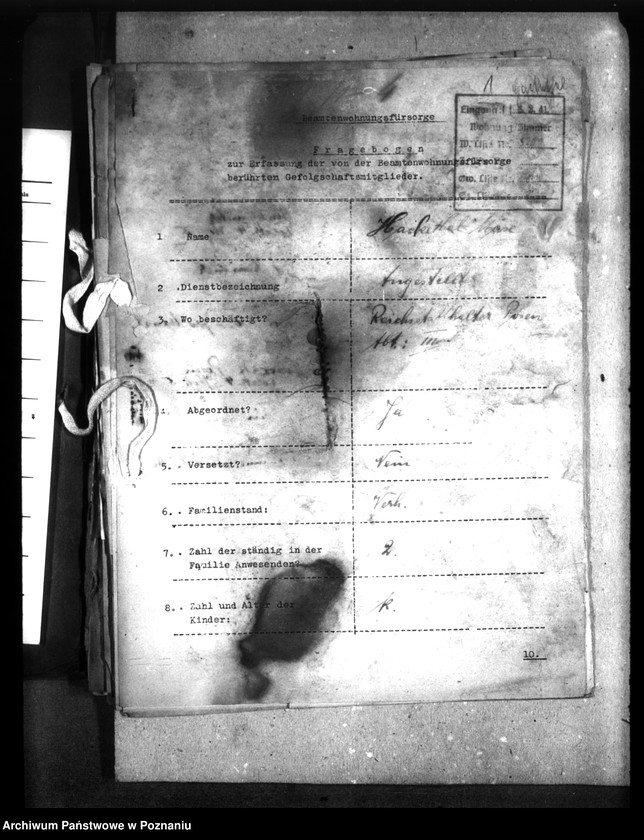 Beamtenwohnungsfürsorge
Fragebogen
zur Erfassung der von der Beamtenwohnungsfürsorge
berührten Gefolgschaftsmitglieder.
1 Name
2 Dienstbezeichnung
3. Wo beschäftigt? Reichsstatthalter Posen
Abt: III
4. Abgeordnet? Ja
5. Versetzt? Nein
6. Familienstand: Verh.
7. Zahl der ständig in der 2.
Familie Anwesenden?
8. Zahl und Alter der
Kinder:
10.
Archiwum Państwowe w Poznaniu